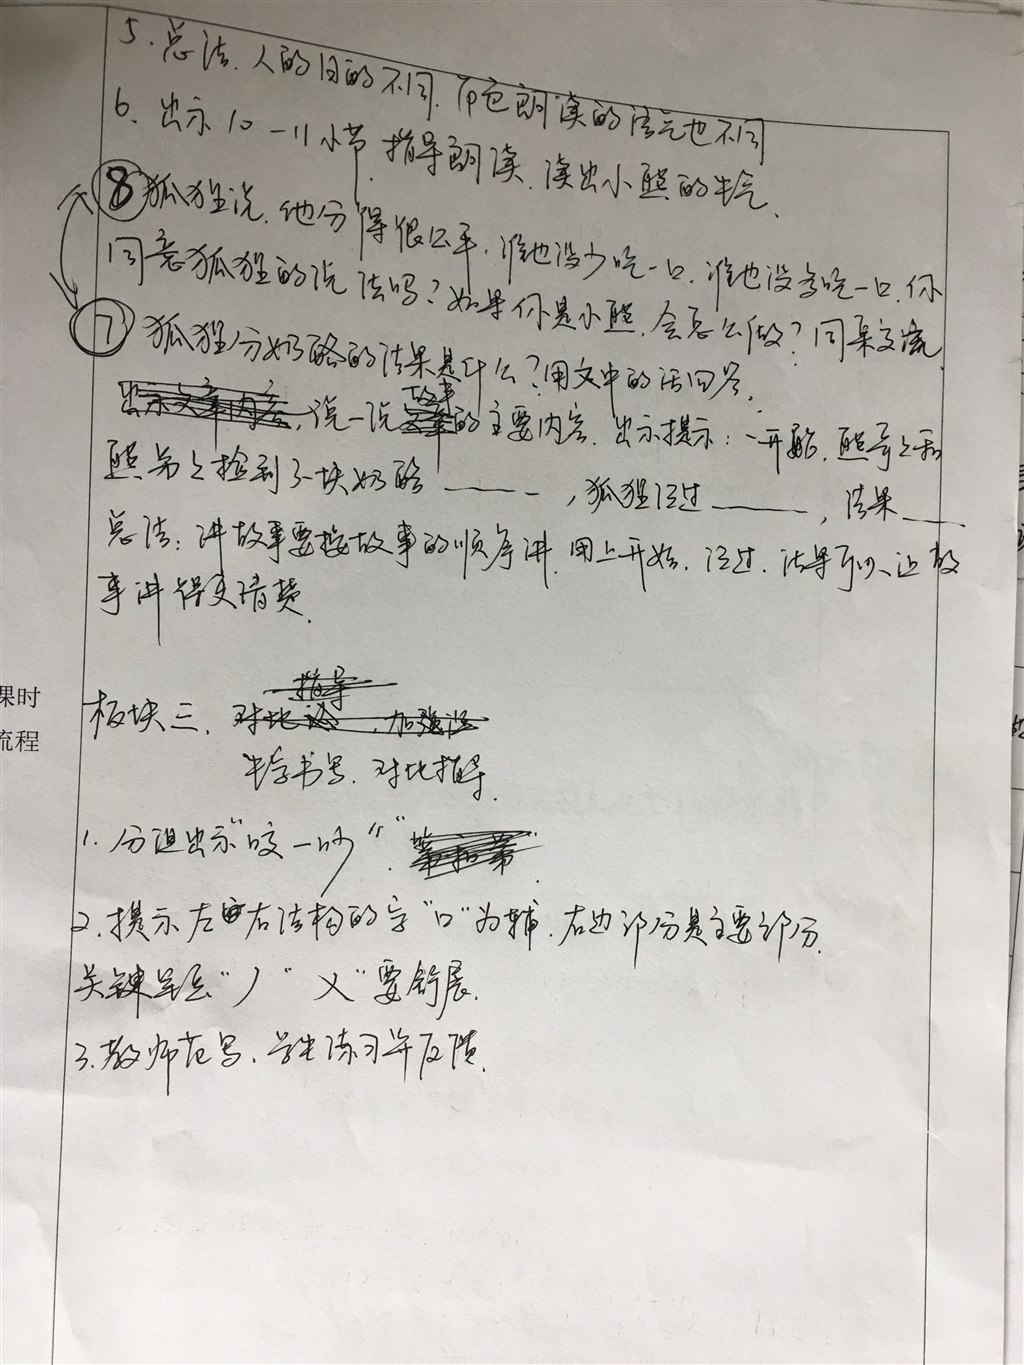 5. 总结、人的目的不同,而它朗读的语气也不同
6、出示10—11小节,指导朗读、读出小熊的生气、
⑧狐狸说,他分得很公平,谁也没少吃一口,谁也没多吃一口,你
同意狐狸的说法吗?如果你是小熊,会怎么做?同桌交流
⑦狐狸分奶酪的结果是什么?用文中的话回答、
出示文章内容,说一说故事的主要内容、出示提示:一开始,熊哥哥和
熊弟弟捡到了一块奶酪____,狐狸经过____,结果____
总结:讲故事要按故事的顺序讲,用上开始、经过、结果可以让故
事讲得更清楚.
课时
流程
板块三、
指导
对比 加强
生字书写,对比指导.
1. 分组出示"咬—吵" "第和第"
2. 提示左右结构的字"口"为辅,右边部分是主要部分.
关键笔画"丿" "乂"要舒展.
3. 教师范写、学生练习并反馈.